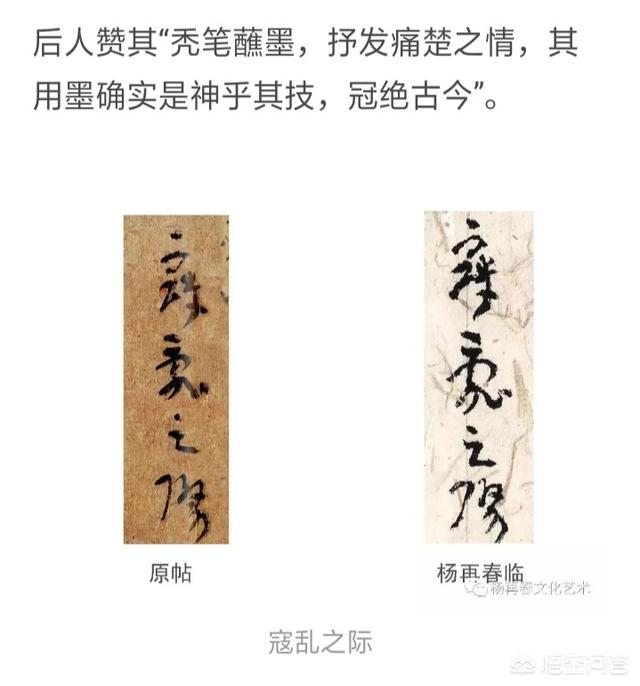 后人赞其“秃笔蘸墨，抒发痛楚之情，其
用墨确实是神乎其技，冠绝古今”。
寇乱之际
寇乱之际
原帖
杨再春临
杨再春文化艺术
寇乱之际
悟空问答